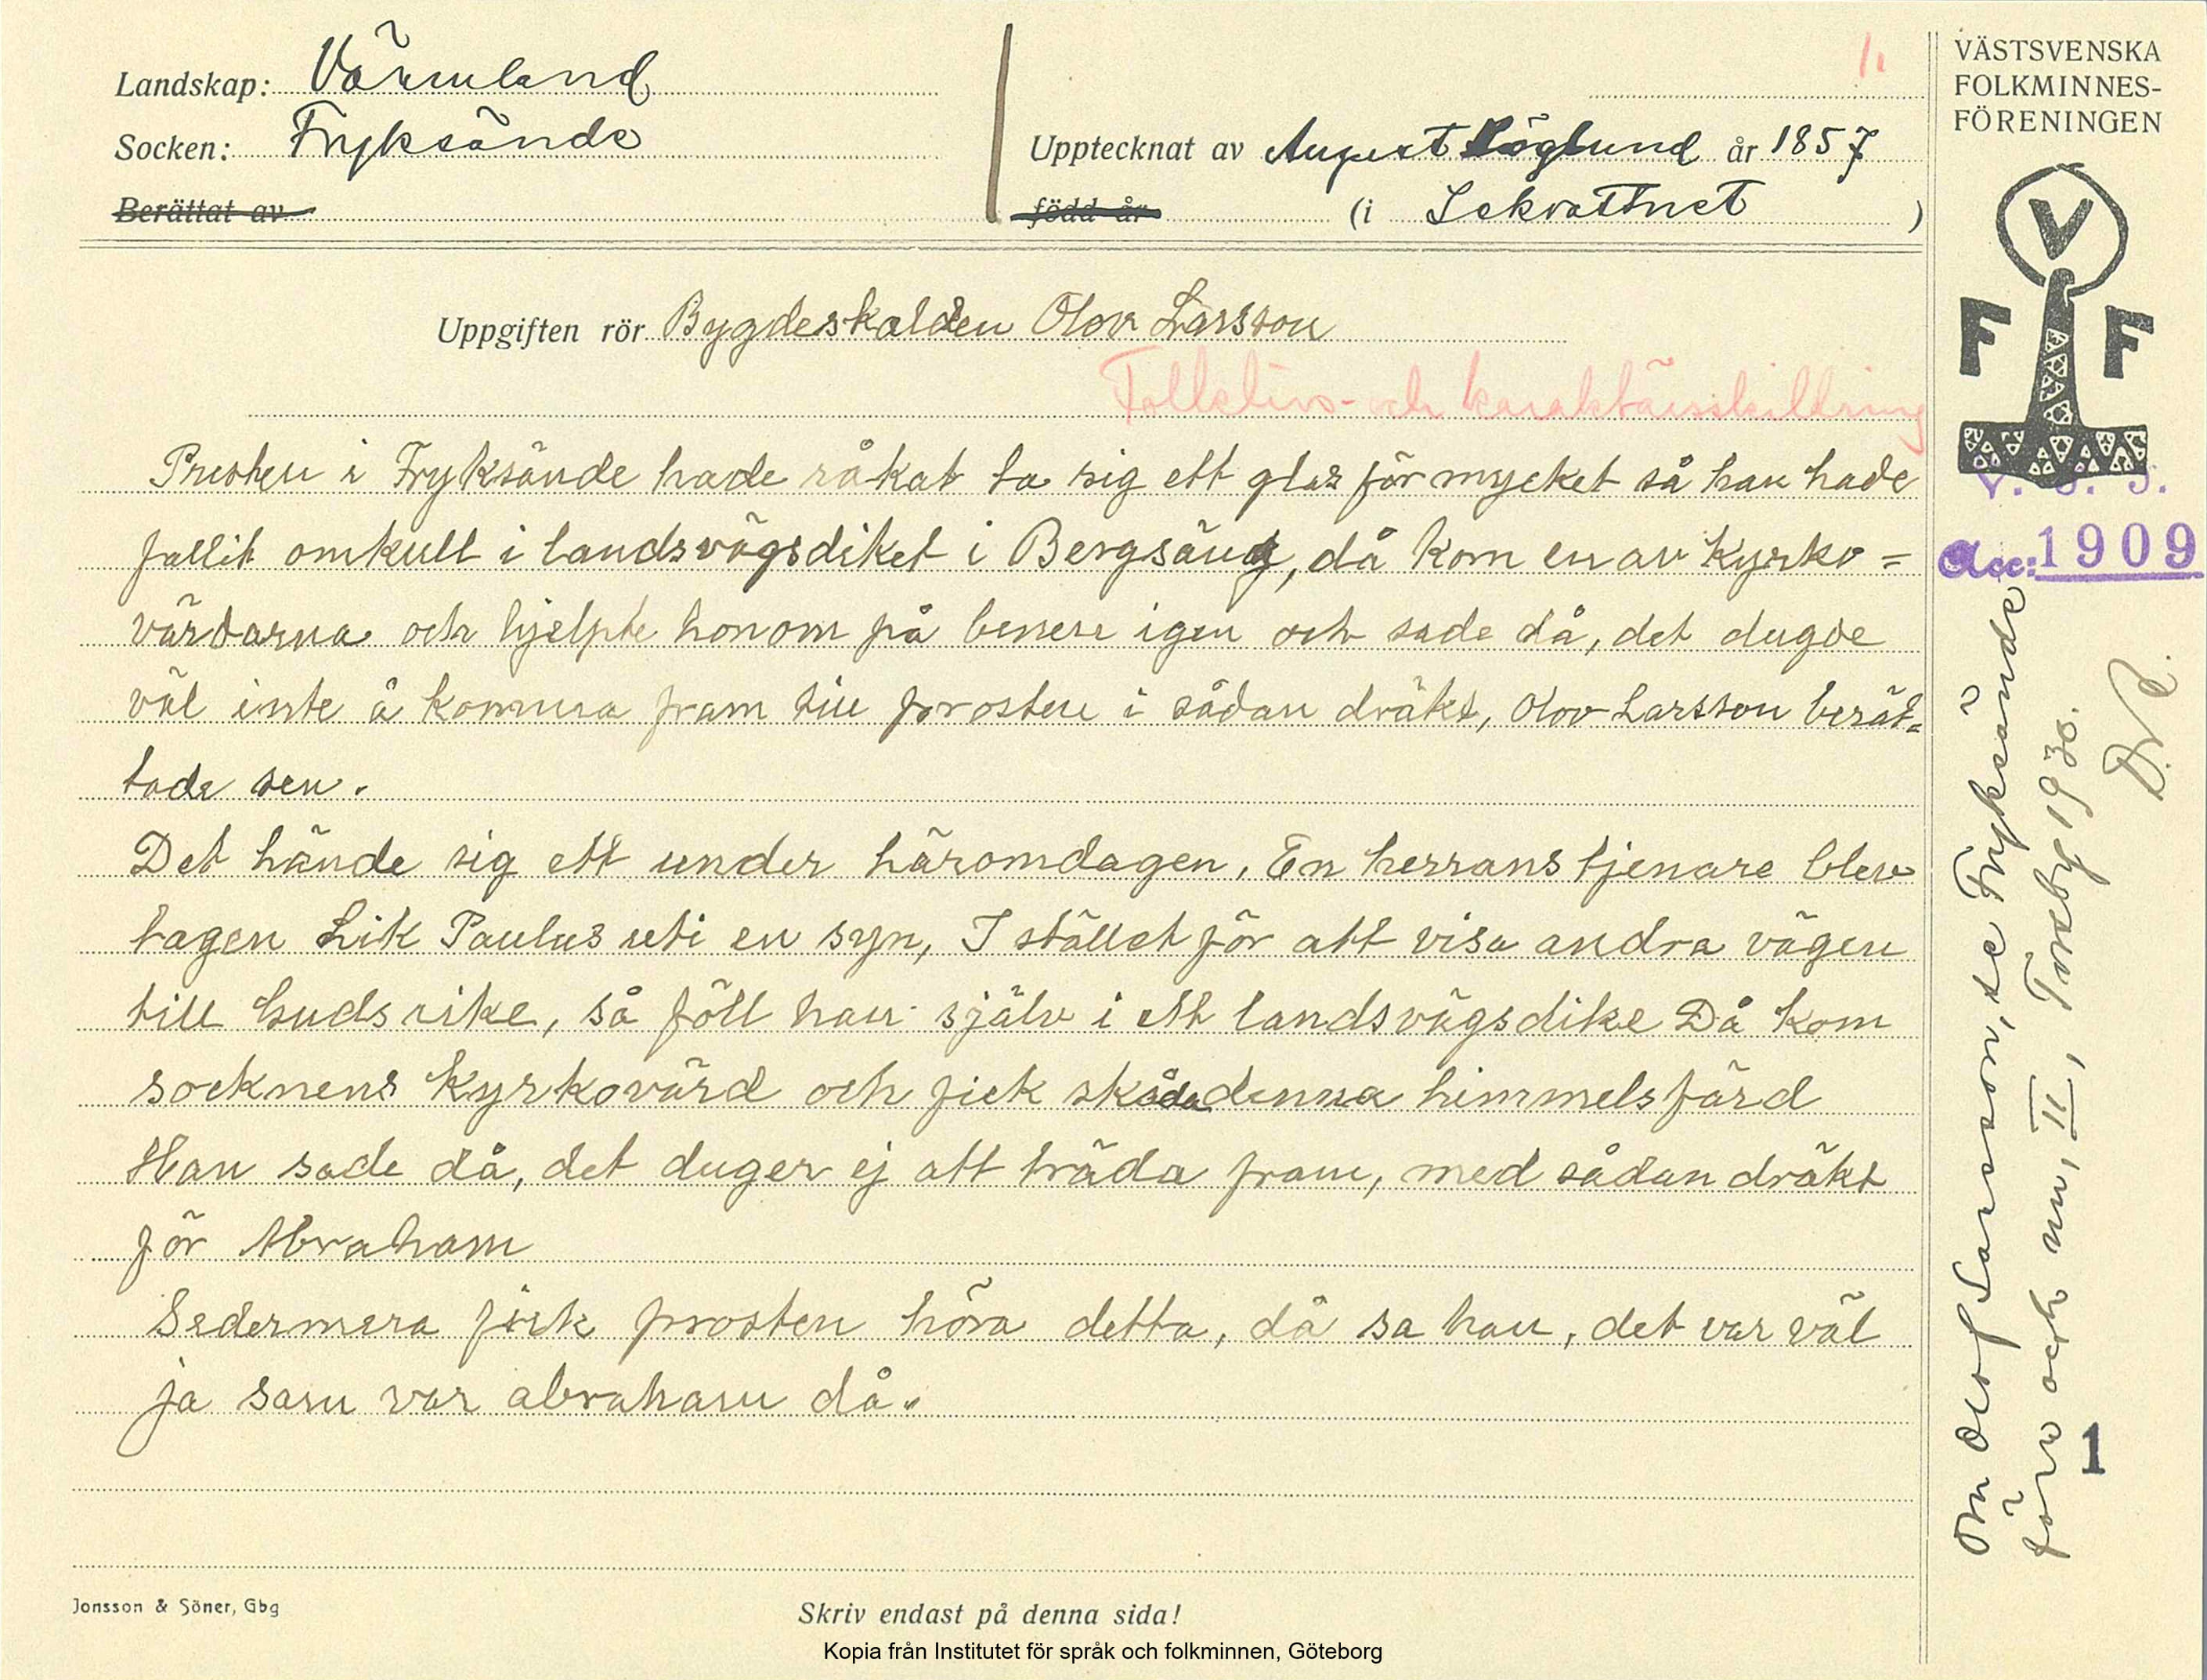 Landskap: Värmland
Socken: Fryksände
Berättat av
Upptecknat av August Höglund år 1857
född år (i Lekvattnet )
Uppgiften rör Bygdeskalden Olov Larsson
Folklivs- och karaktärsskildring
Prosten i Fryksände hade råkat ta sig ett glas för mycket så han hade
fallit omkull i landsvägsdiket i Bergsäng, då kom en av kyrko=
värdarna och hjelpte honom på benene igen och sade då, det dugde
väl inte å komma fram till prosten i sådan dräkt, Olov Larsson berät=
tade sen.
Det hände sig ett under häromdagen, En herrans tjenare blev
tagen Lik Paulus uti en syn, I stället för att visa andra vägen
till Guds rike, så föll han själv i ett landsvägsdike Då kom
socknens kyrkovärd och fick skåda denna himmelsfärd
Han sade då, det duger ej att träda fram, med sådan dräkt
för Abraham
Sedermera fick prosten höra detta, då sa han, det var väl
ja som var abraham då.
Jonsson & Söner, Gbg
Skriv endast på denna sida!
Kopia från Institutet för språk och folkminnen, Göteborg
VÄSTSVENSKA
FOLKMINNES-
FÖRENINGEN
V
F F
V. S. J.
Acc: 1909
Om Olof Larsson, se Fryksände
förr och nu, II, Torsby 1930.
1